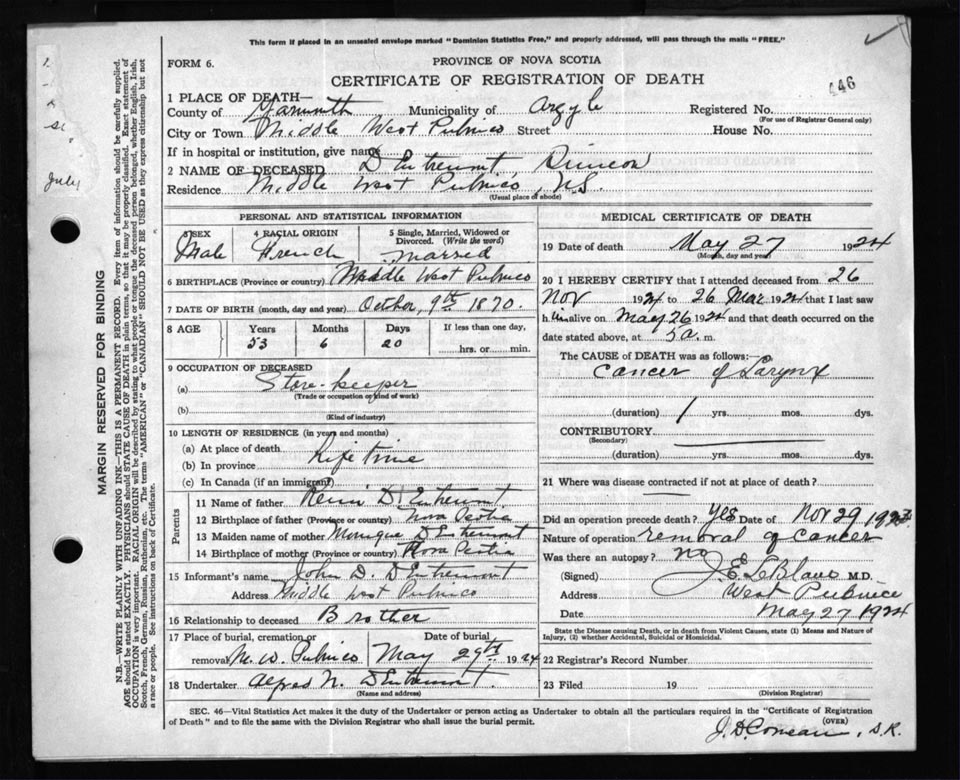 This form if placed in an unsealed envelope marked "Dominion Statistics Free," and properly addressed, will pass through the mails "FREE."
FORM 6.
PROVINCE OF NOVA SCOTIA
CERTIFICATE OF REGISTRATION OF DEATH
446
1 PLACE OF DEATH—
County of Yarmouth Municipality of Argyle Registered No.
(For use of Registrar General only)
City or Town Middle West Pubnico Street House No.
If in hospital or institution, give name
2 NAME OF DECEASED D'Entremont Simeon
Residence Middle West Pubnico, N.S.
(Usual place of abode)
PERSONAL AND STATISTICAL INFORMATION
3 SEX Male
4 RACIAL ORIGIN French
5 Single, Married, Widowed or Divorced. (Write the word) married
6 BIRTHPLACE (Province or country) Middle West Pubnico
7 DATE OF BIRTH (month, day and year) October, 9th 1870.
8 AGE Years Months Days If less than one day,
53 6 20 hrs. or min.
9 OCCUPATION OF DECEASED
(a) Store-keeper
(Trade or occupation or kind of work)
(b)
(Kind of industry)
10 LENGTH OF RESIDENCE (in years and months)
(a) At place of death
(b) In province Life time
(c) In Canada (if an immigrant)
Parents
11 Name of father Remi D'Entremont
12 Birthplace of father (Province or country) Nova Scotia
13 Maiden name of mother Monique D'Entremont
14 Birthplace of mother (Province or country) Nova Scotia
15 Informant's name John D. D'Entremont
Address Middle West Pubnico
16 Relationship to deceased Brother
17 Place of burial, cremation or removal M. W. Pubnico
Date of burial May 29th 1924
18 Undertaker Alfred N. D'Entremont.
(Name and address)
MEDICAL CERTIFICATE OF DEATH
19 Date of death May 27 1924
(Month, day and year)
20 I HEREBY CERTIFY that I attended deceased from 26
Nov 1924 to 26 Mar 1924 that I last saw
him alive on May 26 1924 and that death occurred on the
date stated above, at 5 a. m.
The CAUSE of DEATH was as follows:
Cancer of Larynx
(duration) 1 yrs. mos. dys.
CONTRIBUTORY
(Secondary)
(duration) yrs. mos. dys.
21 Where was disease contracted if not at place of death?
Did an operation precede death? Yes Date of Nov 29 1923
Nature of operation removal of cancer
Was there an autopsy? no
(Signed) J. E. LeBlanc M.D.
Address West Pubnico
Date May 27 1924
State the Disease causing Death, or in death from Violent Causes, state (1) Means and Nature of
Injury, (2) whether Accidental, Suicidal or Homicidal.
22 Registrar's Record Number
23 Filed 19
(Division Registrar)
SEC. 46—Vital Statistics Act makes it the duty of the Undertaker or person acting as Undertaker to obtain all the particulars required in the "Certificate of Registration
of Death" and to file the same with the Division Registrar who shall issue the burial permit.
(OVER)
J. D. Comeau, D.R.
MARGIN RESERVED FOR BINDING
N.B.—WRITE PLAINLY WITH UNFADING INK—THIS IS A PERMANENT RECORD. Every item of information should be carefully supplied.
AGE should be stated EXACTLY. PHYSICIANS should STATE CAUSE OF DEATH in plain terms, so that it may be properly classified. Exact statement of
OCCUPATION is very important. RACIAL ORIGIN will be described by stating to what people or tongue the deceased person belonged, whether English, Irish,
Scotch, French, German, Russian, Ruthenian, etc. The terms "AMERICAN" or "CANADIAN" SHOULD NOT BE USED as they express citizenship but not
a race or people. See instructions on back of Certificate.
July